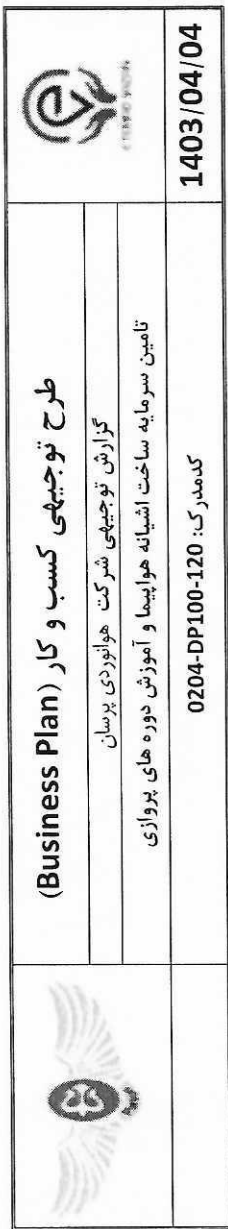 طرح توجیهی کسب و کار (Business Plan)
گزارش توجیهی شرکت هوانوردی پرسان
تامین سرمایه ساخت اشیانه هواپیما و آموزش دوره های پروازی
کدمدرک: 0204-DP100-120
1403/04/04